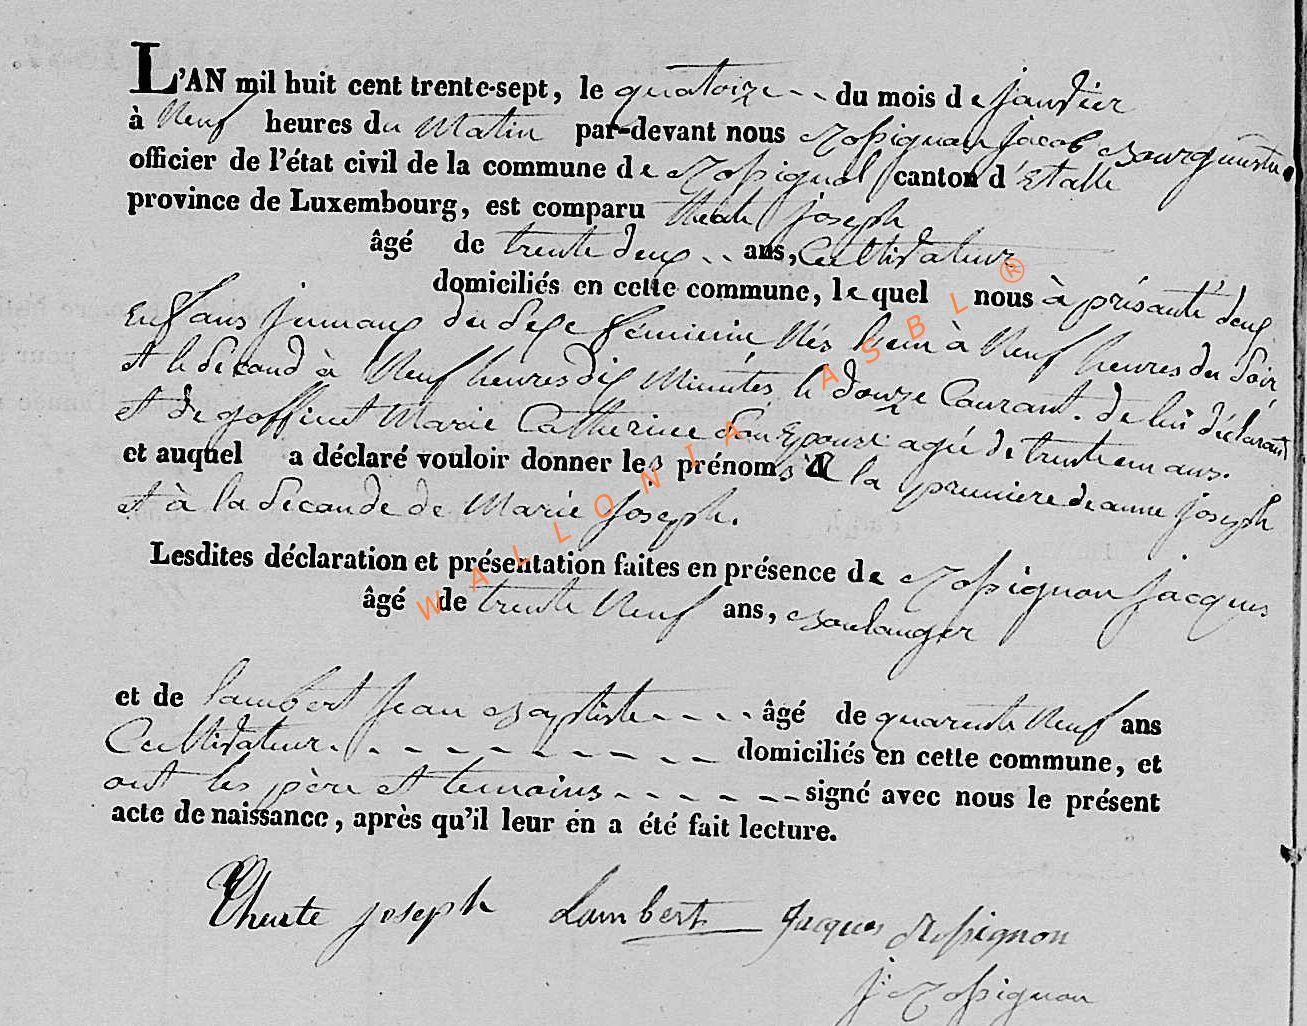 L'AN mil huit cent trente-sept, le quatorze -- du mois de janvier
à Neuf heures du Matin par-devant nous Rossignon Jacob Bourguestre
officier de l'état civil de la commune de Rossignol canton d'Etalle
province de Luxembourg, est comparu Joseph
âgé de trente deux -- ans, Cultivateur
domiciliés en cette commune, lequel nous à présanté deux
Enfans jumaux du Sexe féminin Nés lun à Neuf heures du Soir
et le Second à Neuf heures dix Minutes, le douze Courant. de lui déclarant
et de goffinet Marie Catherine son Epouse agée de trente un ans.
et auquel a déclaré vouloir donner les prénoms à la premiere de anne Joseph
et à la Secande de Marie Joseph.
Lesdites déclaration et présentation faites en présence de Rossignon Jacques
âgé de trente Neuf ans, Boulanger
et de lambert Jean Baptiste ---- âgé de quarente Neuf ans
Cultivateur. -------- domiciliés en cette commune, et
ont les père et temoins ------ signé avec nous le présent
acte de naissance, après qu'il leur en a été fait lecture.
Joseph Lambert Jacques Rossignon
J: Rossignon
WALLONIA ASBL ®